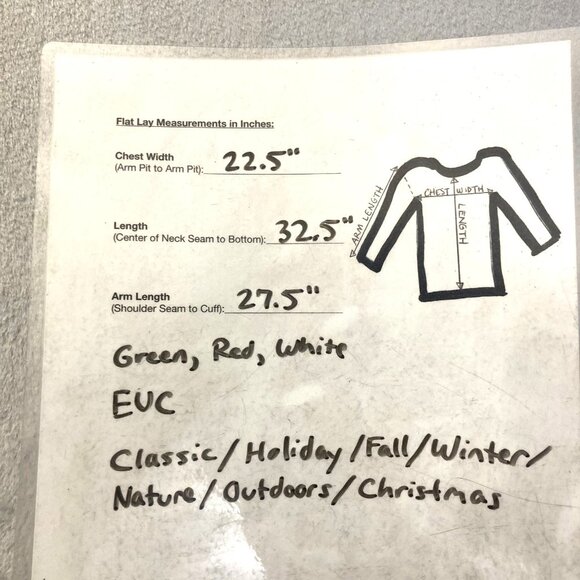 Flat Lay Measurements in Inches:
Chest Width
(Arm Pit to Arm Pit): 22.5"
Length
(Center of Neck Seam to Bottom): 32.5"
Arm Length
(Shoulder Seam to Cuff): 27.5"
ARM LENGTH
CHEST WIDTH
LENGTH
Green, Red, White
EUC
Classic/Holiday/Fall/Winter/
Nature/Outdoors/Christmas